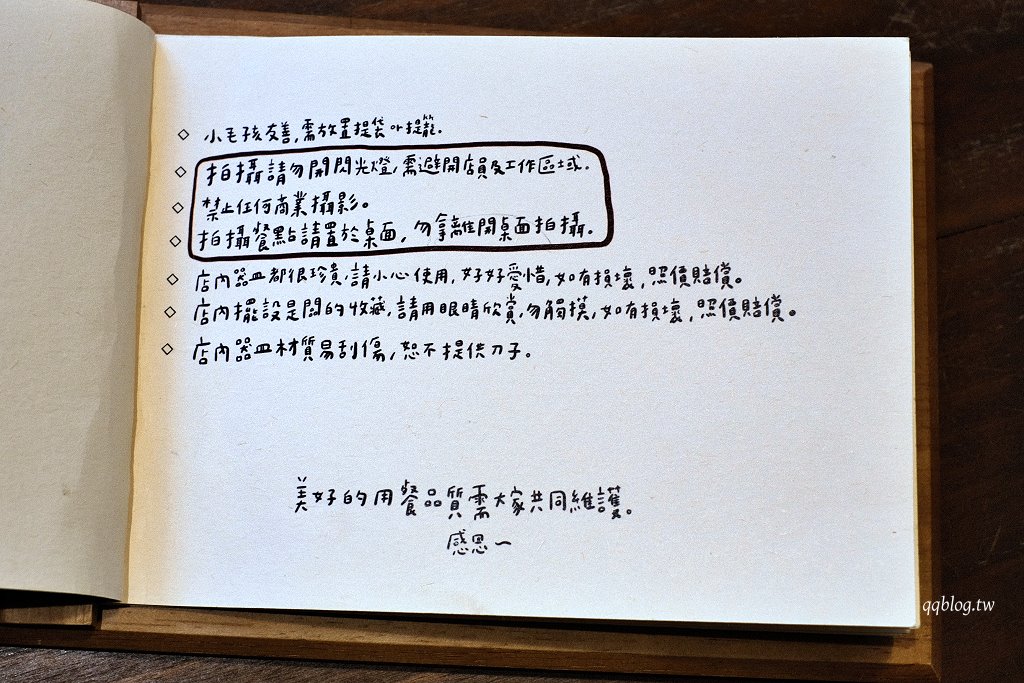 ◇ 小毛孩友善,需放置提袋or提籠.
◇ 拍攝請勿開閃光燈,需避開店員及工作區域.
◇ 禁止任何商業攝影。
◇ 拍攝餐點請置於桌面,勿拿離開桌面拍攝.
◇ 店內器皿都很珍貴,請小心使用,好好愛惜,如有損壞,照價賠償。
◇ 店內擺設是闆的收藏,請用眼睛欣賞,勿觸摸,如有損壞,照價賠償。
◇ 店內器皿材質易刮傷,恕不提供刀子。
美好的用餐品質需大家共同維護。
感恩~
qqblog.tw